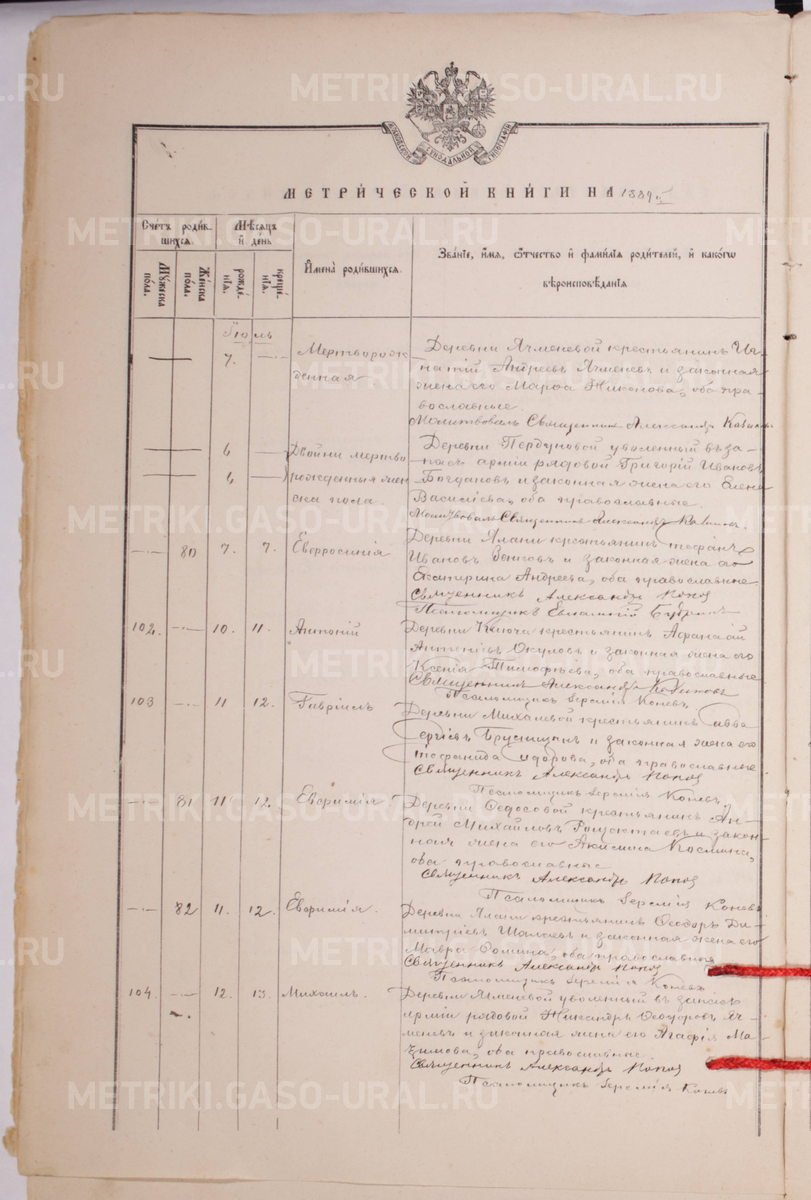 МОСКОВСКОЙ СѴНОДАЛЬНОЙ ТИПОГРАФІИ
МЕТРИЧЕСКОЙ КНИГИ НА 1889 г.
Счетъ родившихся.
Мѣсяцъ и день
Имена родившихся.
Званіе, имя, отчество и фамилія родителей, и какого
вѣроисповѣданія
Мужеска пола.
Женска пола.
рожденія.
крещенія.
Іюль
7. Мертворож
денная
Деревни Ячменевой крестьянинъ Иг-
натій Андреевъ Ячменевъ и законная
жена его Марѳа Никонова, оба пра-
вославные.
Молитвовалъ Священникъ Александръ
6 Двойни мертво
6 рожденныя жен
ска пола
Деревни Пердуновой уволенный въ за-
пасъ арміи рядовой Григорій Ивановъ
Богдановъ и законная жена его Елена
Васильева, оба православные.
Молитвовалъ Священникъ Александръ
80 7. 7. Евфросинія
Деревни Ялани крестьянинъ
Ивановъ и законная жена его
Екатерина Андреева, оба православные
Священникъ Александръ Попов
Псаломщикъ Евлампій
102. 10. 11. Антоній
Деревни Ключа крестьянинъ Афанасій
Антоніевъ Окуловъ и законная жена его
Ксенія Тимофѣева, оба православные
Священникъ Александръ
Псаломщикъ Іеремія Коневъ
103 11 12. Гавріилъ
Деревни Михалевой крестьянинъ Савва
Сергіевъ Брусницын и законная жена его
Сидорова, оба православные
Священникъ Александръ Попов
Псаломщикъ Іеремія Коневъ
81 11 12. Евфимія.
Деревни Ѳедосовой крестьянинъ Ан-
дрей Михайловъ и закон-
ная жена его Акилина Космина,
оба православные
Священникъ Александръ Попов
Псаломщикъ Іеремія Коневъ
82 11. 12. Евфимія.
Деревни Ялани крестьянинъ Ѳеодоръ Ди-
митріевъ и законная жена его
Мавра Ѳомина, оба православные
Священникъ Александръ Попов
Псаломщикъ Іеремія Коневъ
104. 12. 13. Михаилъ.
Деревни Ячменевой уволенный въ запасъ
арміи рядовой Никандръ Ѳеодоровъ Яч-
меневъ и законная жена его Агафія Ма-
ксимова, оба православные.
Священникъ Александръ Попов
Псаломщикъ Іеремія Коневъ
METRIKI.GASO-URAL.RU